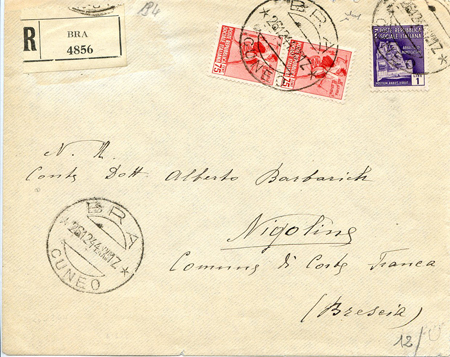 R
BRA
4856
194
BRA
26.12.44
CUNEO
75
75
POSTE REPUBBLICA
SOCIALE ITALIANA
1
N. H.
Conte Dott. Alberto Barbarich
Nigoline
Comune di Corte Franca
(Brescia)
BRA
26.12.44
CUNEO
12/